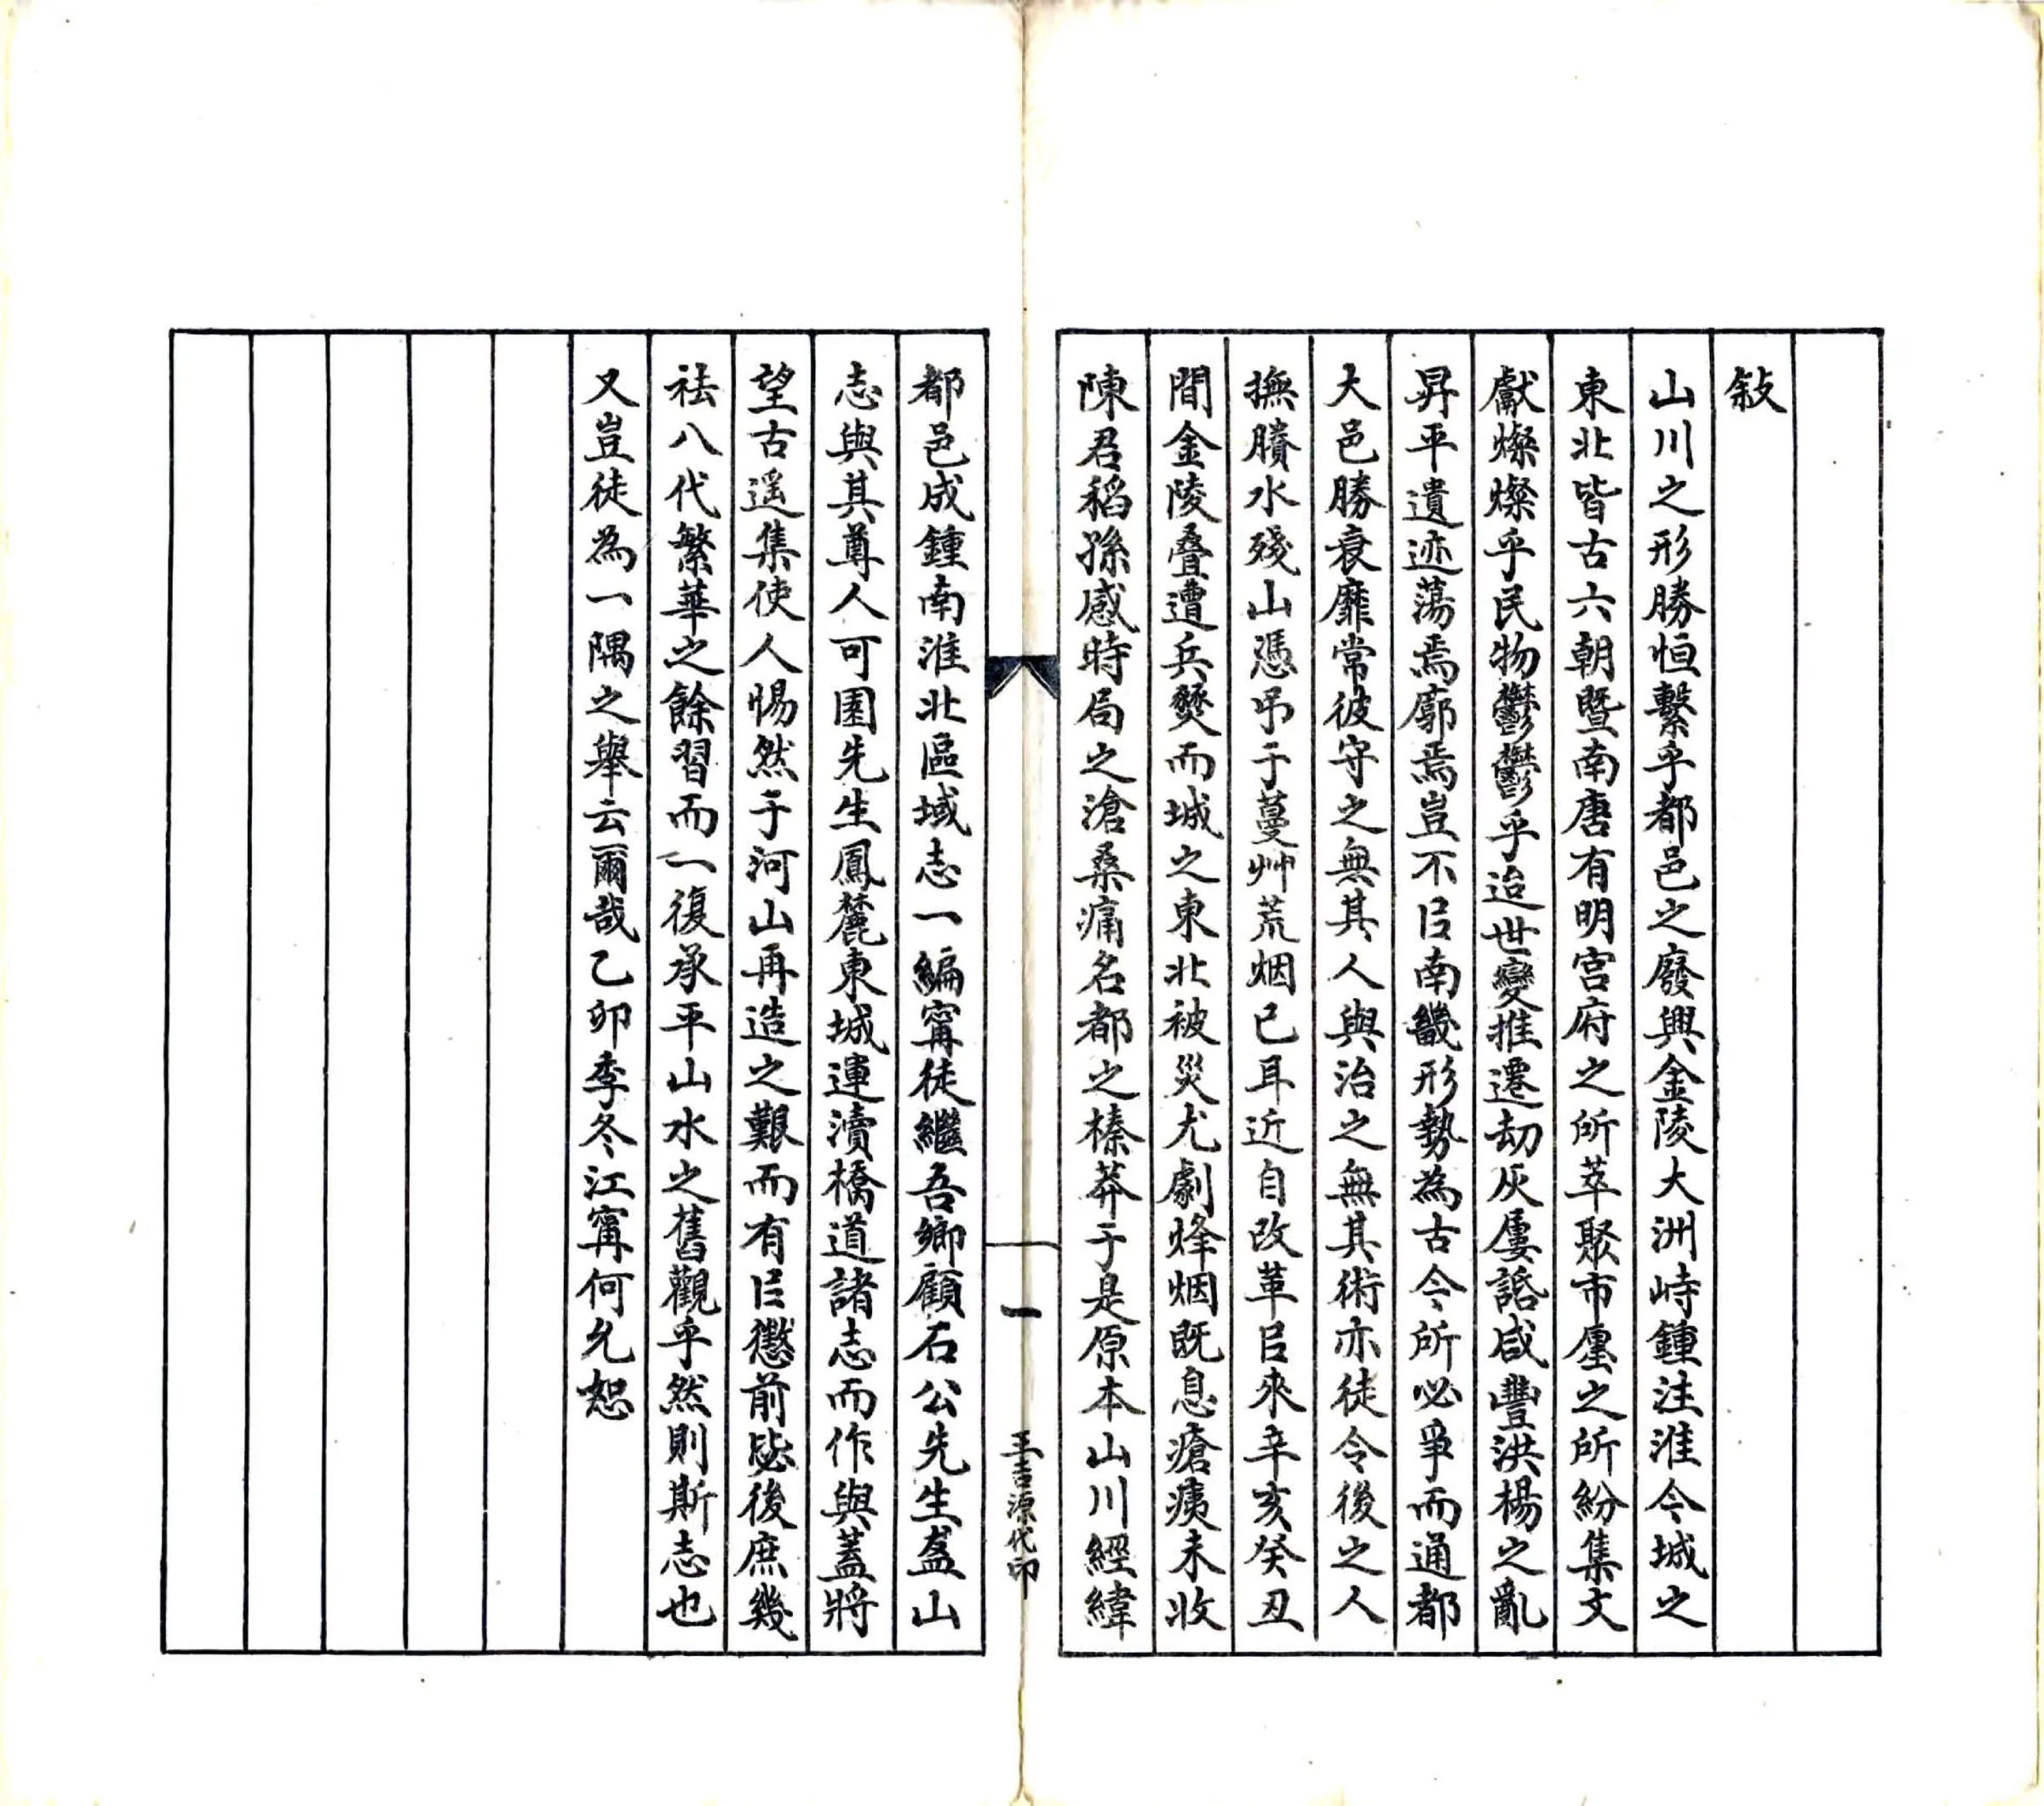 敍
山川之形勝恒繫乎都邑之廢興金陵大洲峙鍾注淮今城之
東北皆古六朝暨南唐有明宮府之所萃聚市廛之所紛集文
獻燦燦乎民物鬱鬱乎迨世變推遷劫灰屢誥咸豐洪楊之亂
昇平遺迹蕩焉廓焉豈不㠯南畿形勢為古今所必爭而通都
大邑勝衰靡常彼守之無其人與治之無其術亦徒令後之人
撫賸水殘山憑弔于蔓艸荒烟已耳近自改革㠯來辛亥癸丑
間金陵叠遭兵燹而城之東北被災尤劇烽烟既息瘡痍未收
陳君稻孫感時局之滄桑痛名都之榛莽于是原本山川經緯
都邑成鍾南淮北區域志一編甯徒繼吾鄉顧石公先生盋山
志與其尊人可園先生鳳麓東城運瀆橋道諸志而作與蓋將
望古遥集使人惕然于河山再造之艱而有㠯懲前毖後庶幾
袪八代繁華之餘習而一復承平山水之舊觀乎然則斯志也
又豈徒為一隅之舉云爾哉乙卯季冬江甯何允恕
一
王吉源代印